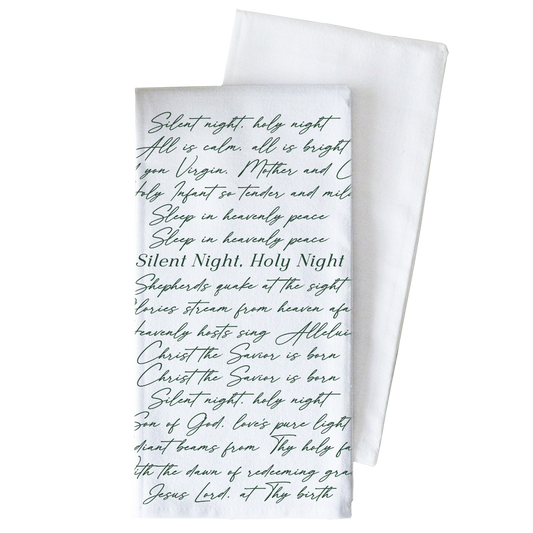 Silent night, holy night
All is calm, all is bright
yon Virgin, Mother and C
oly Infant so tender and mil
Sleep in heavenly peace
Sleep in heavenly peace
Silent Night, Holy Night
Shepherds quake at the sight
lories stream from heaven afa
eavenly hosts sing Allelui
Christ the Savior is born
Christ the Savior is born
Silent night, holy night
Son of God, love's pure light
diant beams from Thy holy fa
ith the dawn of redeeming gra
Jesus Lord, at Thy birth